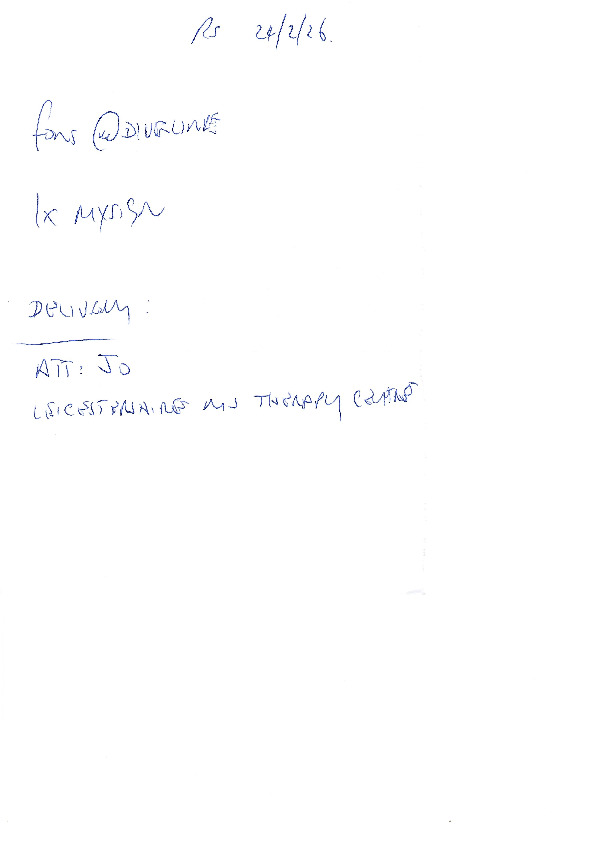 Rs 24/2/26.
fons @DIVELINE
1x MXSIGN
DELIVERY:
ATT: JO
LEICESTERSHIRE MS THERAPY CENTRE